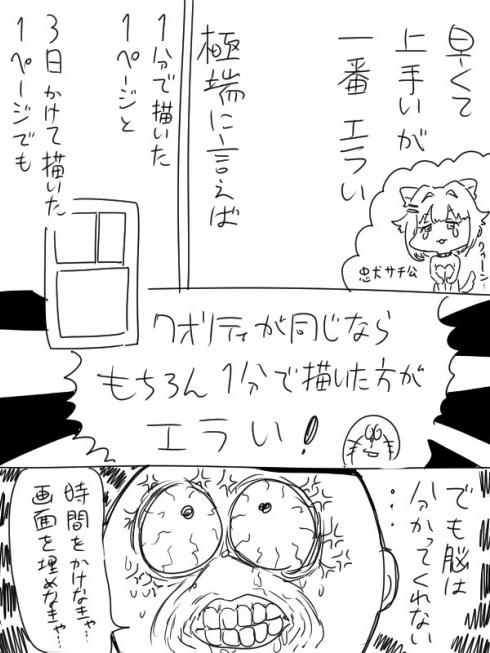 早くて
上手いが
一番エラい
忠犬サチ公
クゥーン…
極端に言えば
1分で描いた
1ページと
3日かけて描いた
1ページでも
クオリティが同じなら
もちろん1分で描いた方が
エラい!
でも脳は
分かってくれない
・・・
時間をかけなきゃ…
画面を埋めなきゃ…